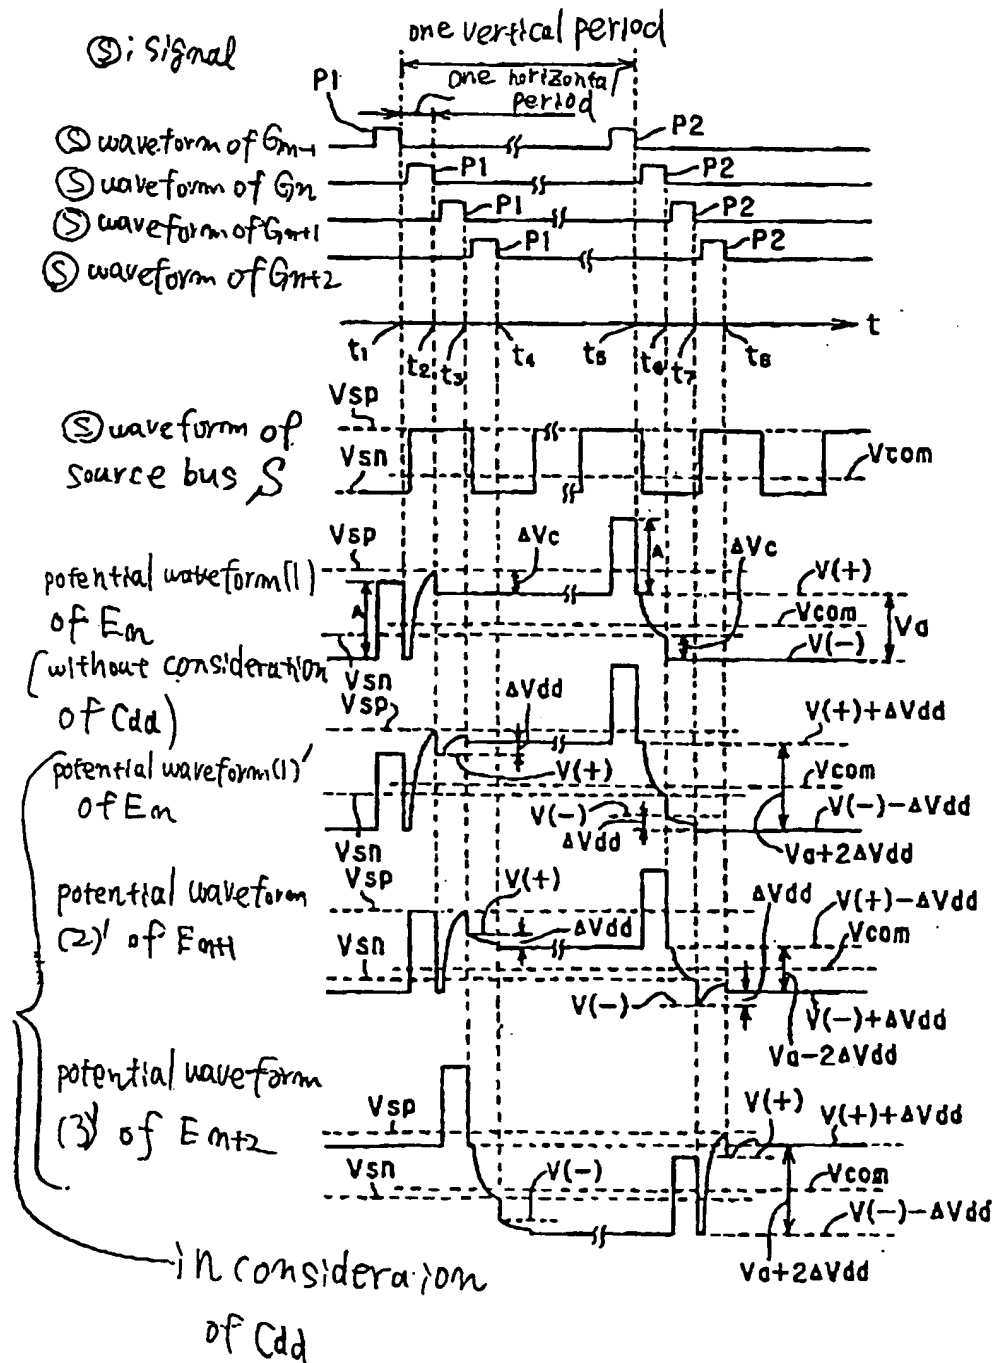 Ⓢ: signal
one vertical period
one horizontal
period
P1
Ⓢ waveform of Gn-1
P2
Ⓢ waveform of Gn
P1
P2
Ⓢ waveform of Gn+1
P1
P2
Ⓢ waveform of Gn+2
P1
P2
t
t1
t2
t3
t4
t5
t6
t7
t8
Ⓢ waveform of
source bus S
Vsp
Vsn
Vcom
potential waveform (1)
of En
(without consideration
of Cdd)
Vsp
A
Vsn
ΔVc
A
ΔVc
V(+)
Vcom
V(-)
Va
potential waveform (1)'
of En
Vsp
Vsn
ΔVdd
V(+)
V(-)
ΔVdd
V(+)+ΔVdd
Vcom
V(-)-ΔVdd
Va+2ΔVdd
potential waveform
(2)' of En+1
Vsp
Vsn
V(+)
ΔVdd
V(-)
ΔVdd
V(+)-ΔVdd
Vcom
V(-)+ΔVdd
Va-2ΔVdd
potential waveform
(3)' of En+2
Vsp
Vsn
V(-)
V(+)
V(+)+ΔVdd
Vcom
V(-)-ΔVdd
Va+2ΔVdd
in consideration
of Cdd